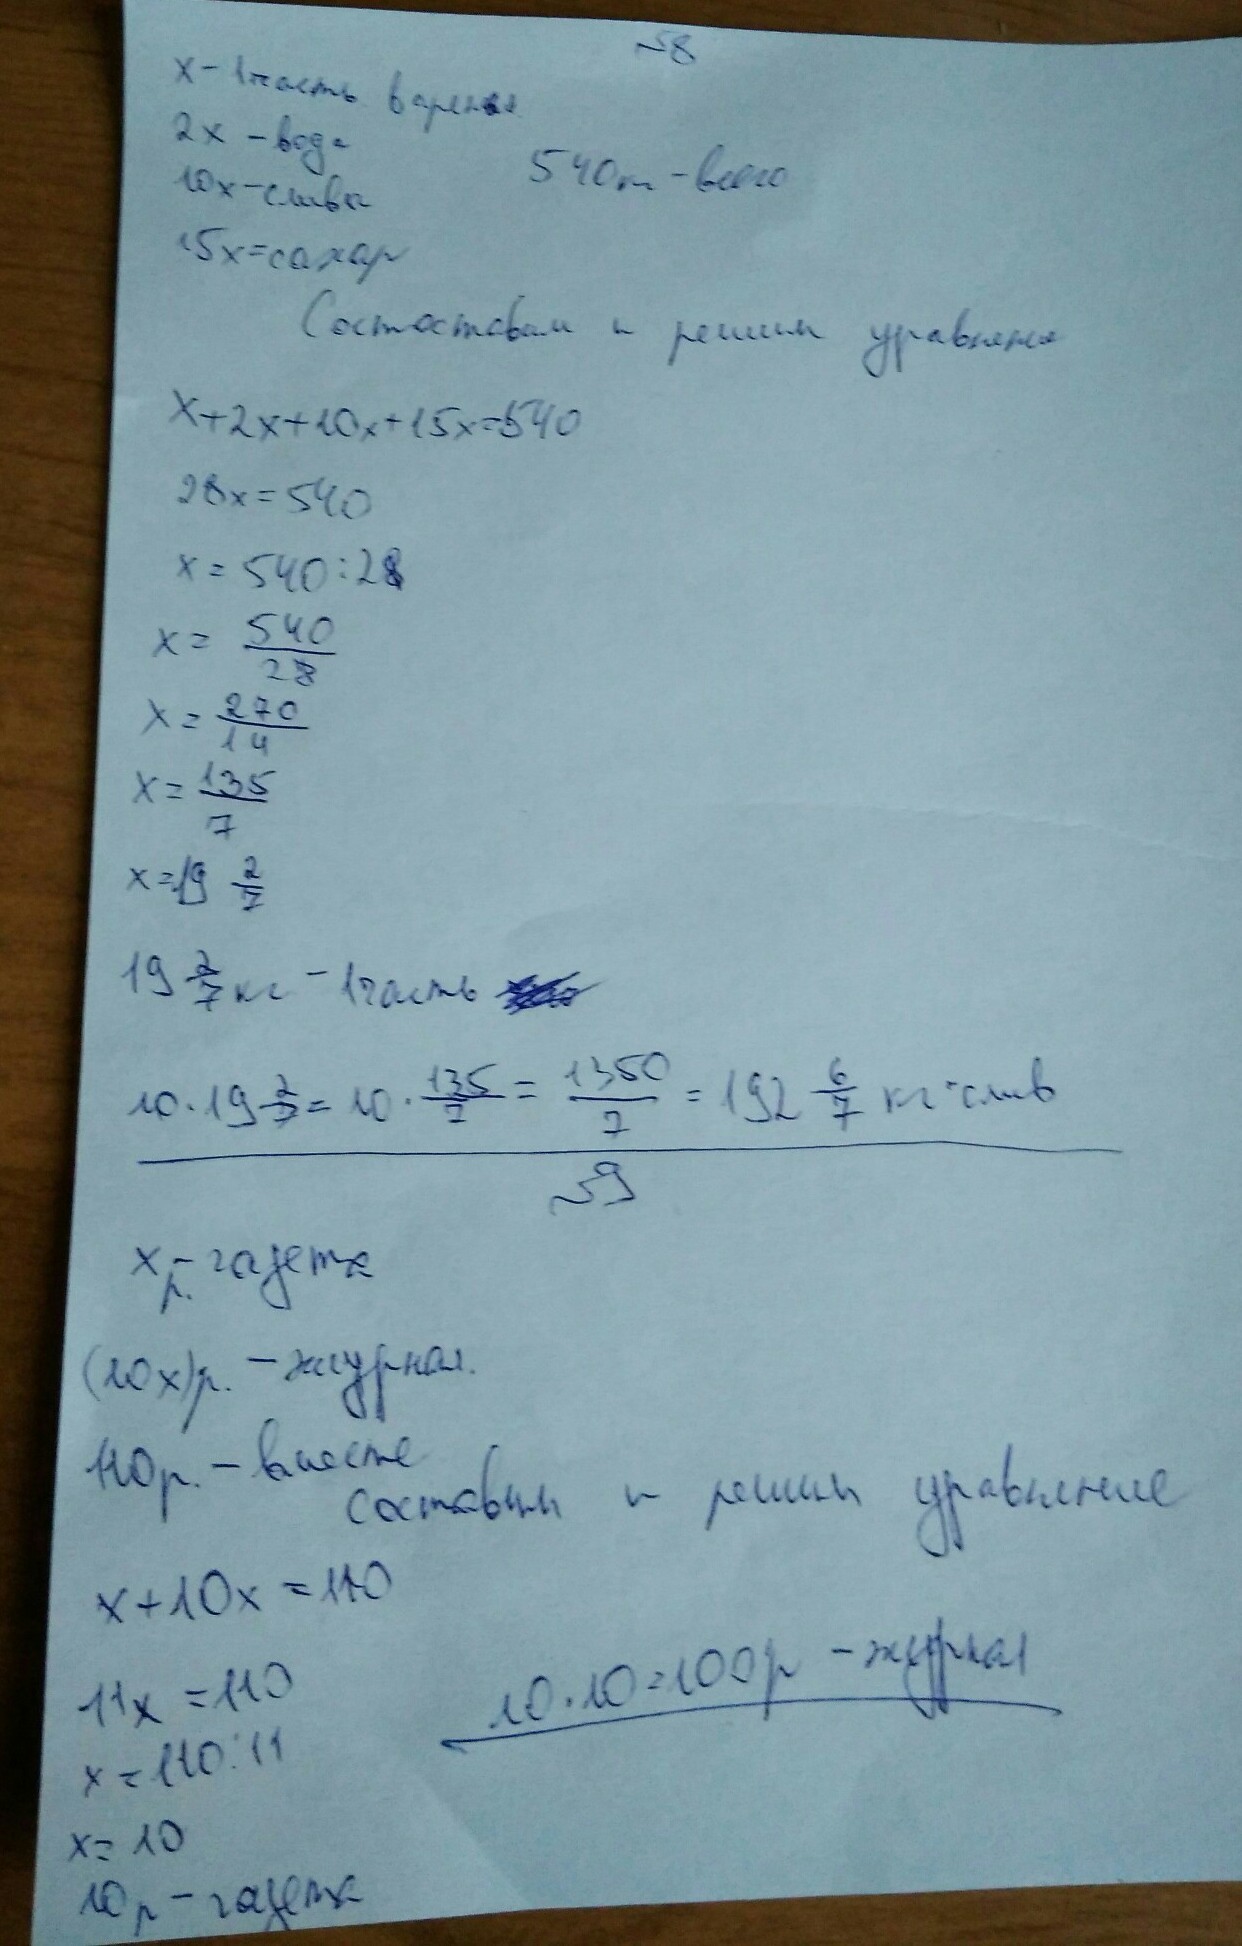 №8
x - 1 часть варенья
2x - вода
540кг - всего
10x - слива
15x = сахар
Состоставим и решим уравнения
x+2x+10x+15x=540
28x=540
x = 540:28
x = 540/28
x = 270/14
x = 135/7
x = 19 2/7
19 2/7 кг - 1 часть
10·19 2/7 = 10 · 135/7 = 1350/7 = 192 6/7 кг - слив
№9
x р. - газета
(10x)р. - журнал.
110р. - вместе
Составим и решим уравнение
x+10x = 110
11x = 110
10·10=100р - журнал
x = 110:11
x = 10
10р - газета